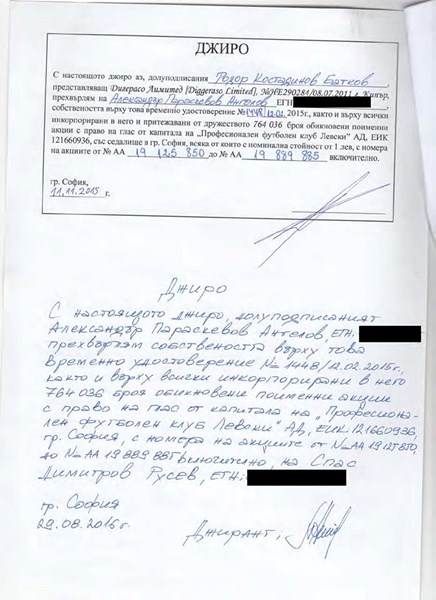 ДЖИРО
С настоящото джиро аз, долуподписания Тодор Костадинов Батков,
представляващ Дигерасо Лимитед [Diggeraso Limited], №НЕ290284/08.07.2011 г. Кипър,
прехвърлям на Александър Параскевов Ангелов ЕГН
собствеността върху това временно удостоверение №1448/12.02.2015г., както и върху всички
инкорпорирани в него и притежавани от дружеството 764 036 броя обикновени поименни
акции с право на глас от капитала на „Професионален футболен клуб Левски" АД, ЕИК
121660936, със седалище в гр. София, всяка от които с номинална стойност от 1 лев, с номера
на акциите от № АА 19 125 850 до № АА 19 889 885 включително.
гр. София,
11.11.2015г.
Джиро
С настоящото джиро, долуподписаният
Александър Параскевов Ангелов, ЕГН:
прехвърлям собствеността върху това
Временно удостоверение №1448/12.02.2015г.,
както и върху всички инкорпорирани в него
764 036 броя обикновени поименни акции
с право на глас от капитала на „Професиона-
лен футболен клуб Левски" АД, ЕИК 121660936,
гр. София, с номера на акциите от № АА 19125850,
до № АА 19889885 включително, на Спас
Димитров Русев, ЕГН:
гр. София
29.08.2016г.
Джирант: